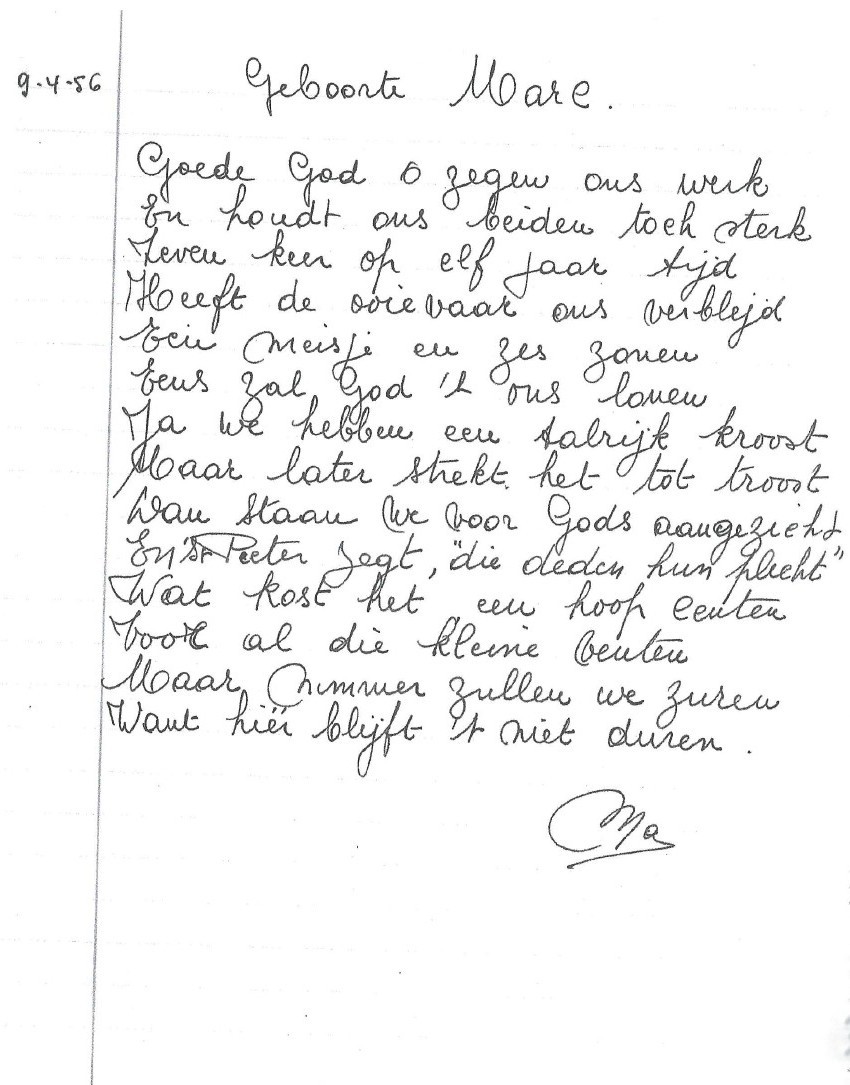 9-4-56
Geboorte Marc.
Goede God o zegen ons werk
En houdt ons beiden toch sterk
Zeven keer op elf jaar tijd
Heeft de ooievaar ons verblijd
Een meisje en zes zonen
Eens zal God 't ons lonen
Ja we hebben een talrijk kroost
Maar later strekt het tot troost
Dan staan we voor Gods aangezicht
En St Peeter zegt, "die deden hun plecht"
Wat kost het een hoop centen
Voor al die kleine venten
Maar nimmer zullen we zuren
Want hier blijft 't niet duren.
Ma